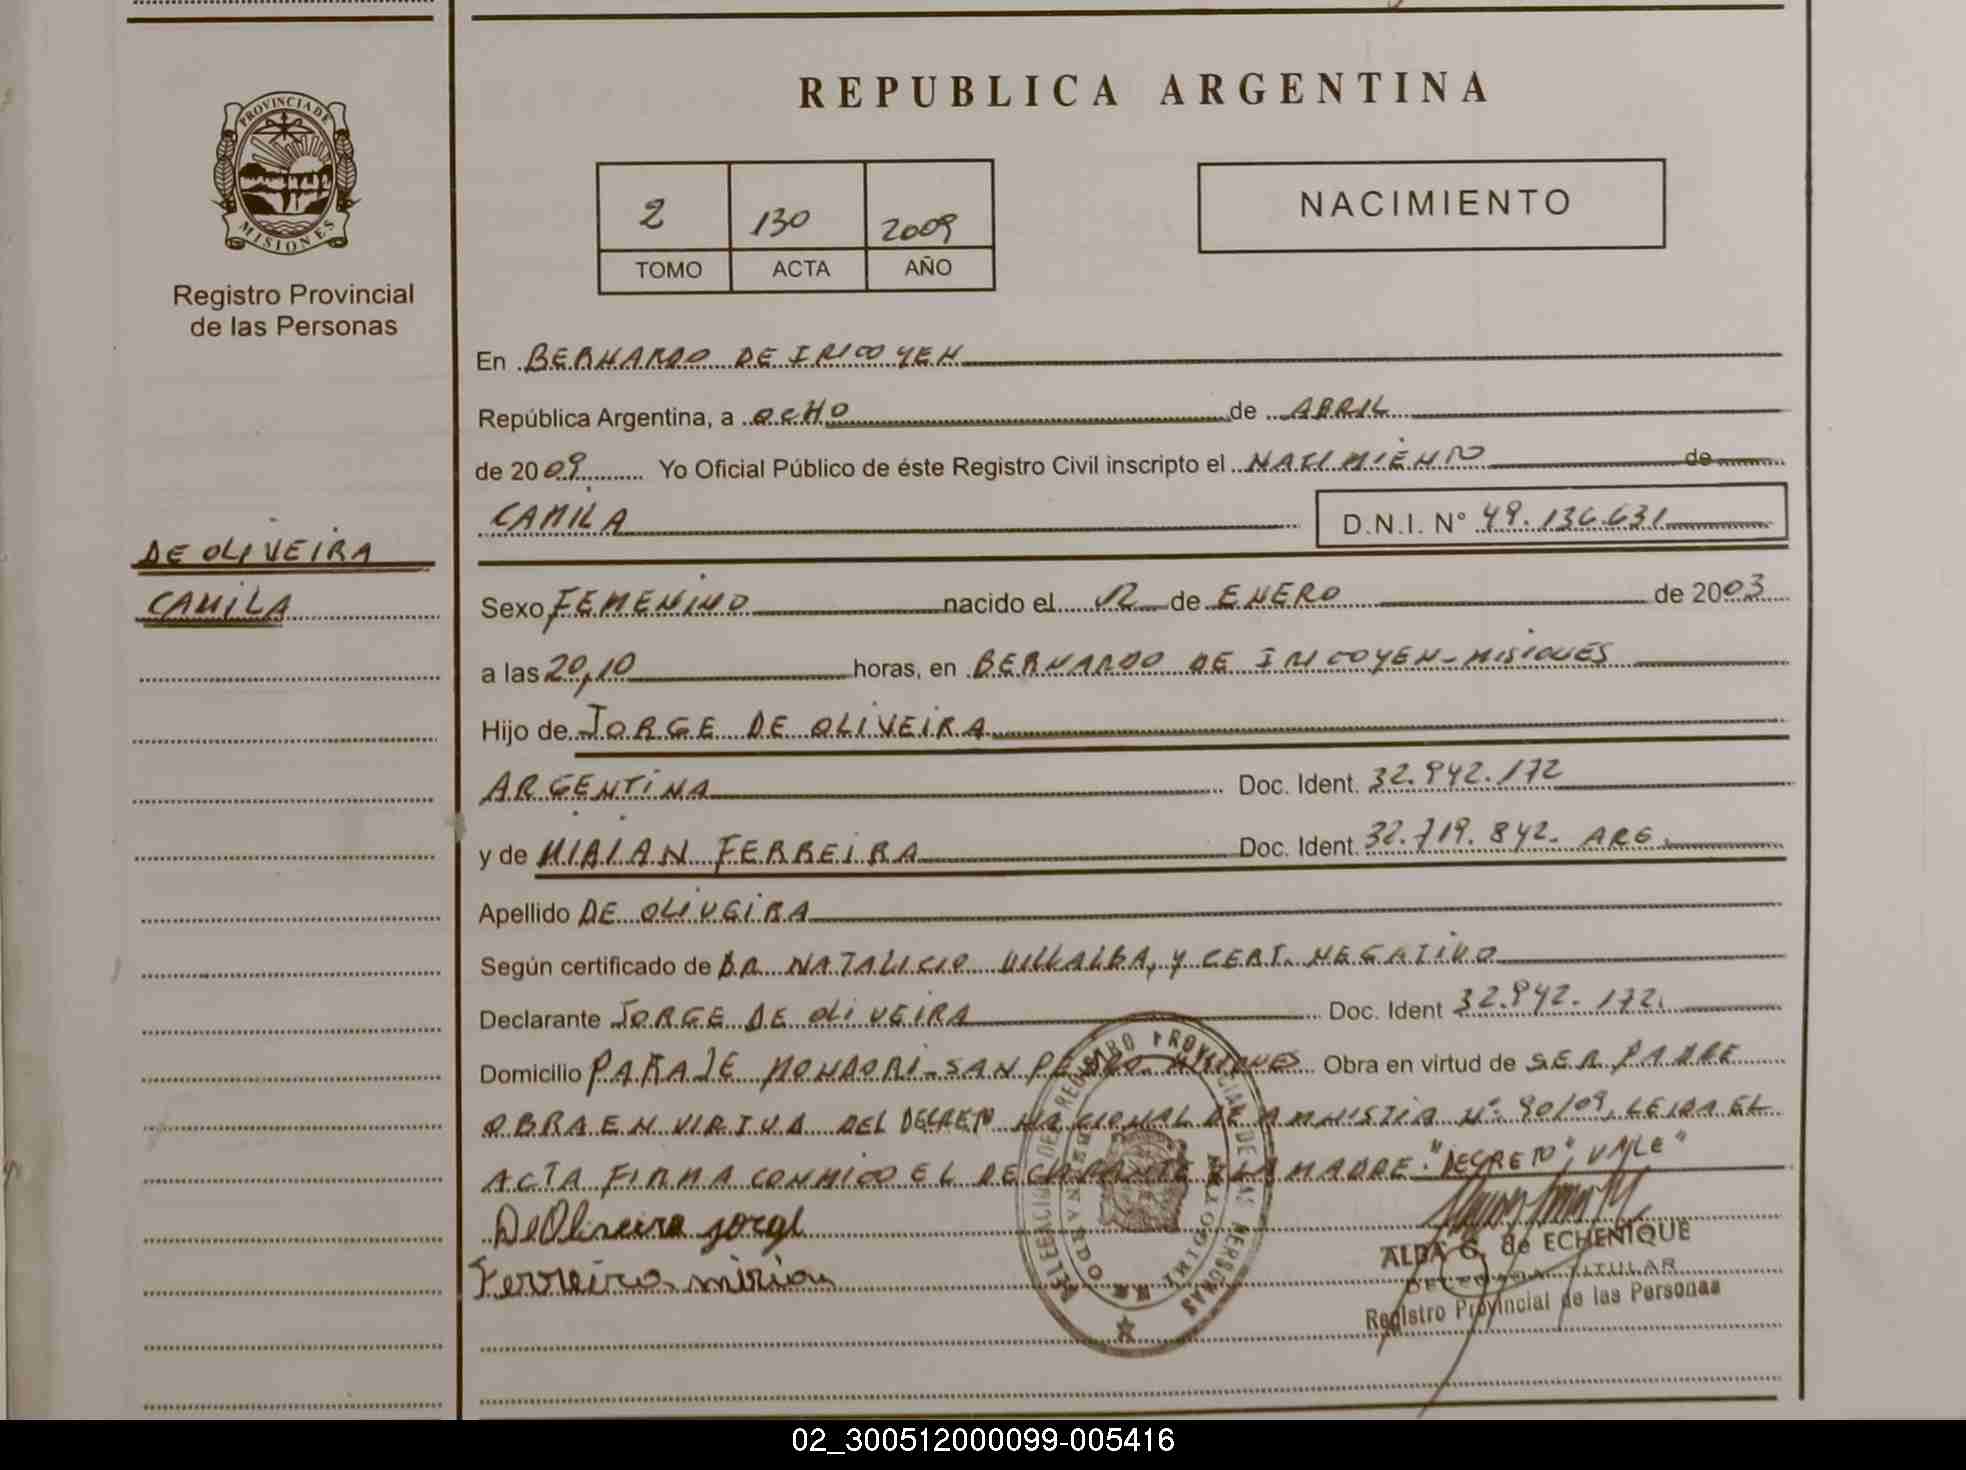 REPUBLICA ARGENTINA
PROVINCIA DE
MISIONES
Registro Provincial
de las Personas
2 130 2009
TOMO ACTA AÑO
NACIMIENTO
En BERNARDO DE IRIGOYEN
República Argentina, a OCHO de ABRIL
de 2009 Yo Oficial Público de éste Registro Civil inscripto el NACIMIENTO de
CAMILA D.N.I. N° 49.136.631
DE OLIVEIRA
CAMILA
Sexo FEMENINO nacido el 12 de ENERO de 2003
a las 20,10 horas, en BERNARDO DE IRIGOYEN-MISIONES
Hijo de JORGE DE OLIVEIRA
ARGENTINA Doc. Ident. 32.942.172
y de MIRIAN FERREIRA Doc. Ident. 32.719.842. ARG.
Apellido DE OLIVEIRA
Según certificado de DR. NATALICIO VILLALBA, Y CERT. NEGATIVO
Declarante JORGE DE OLIVEIRA Doc. Ident 32.942.172.
Domicilio PARAJE MONDORI-SAN PEDRO-MISIONES Obra en virtud de SER PADRE
OBRA EN VIRTUD DEL DECRETO NACIONAL DE AMNISTIA N°. 90/09, LEIDA EL
ACTA FIRMA CONMIGO EL DECLARANTE Y LA MADRE. "DECRETO", VALE"
De Oliveira Jorge
Ferreira mirian
DELEGACION DEL REGISTRO PROVINCIAL DE LAS PERSONAS
BERNARDO DE IRIGOYEN
ALBA G. de ECHENIQUE
DELEGADA TITULAR
Registro Provincial de las Personas
02_300512000099-005416